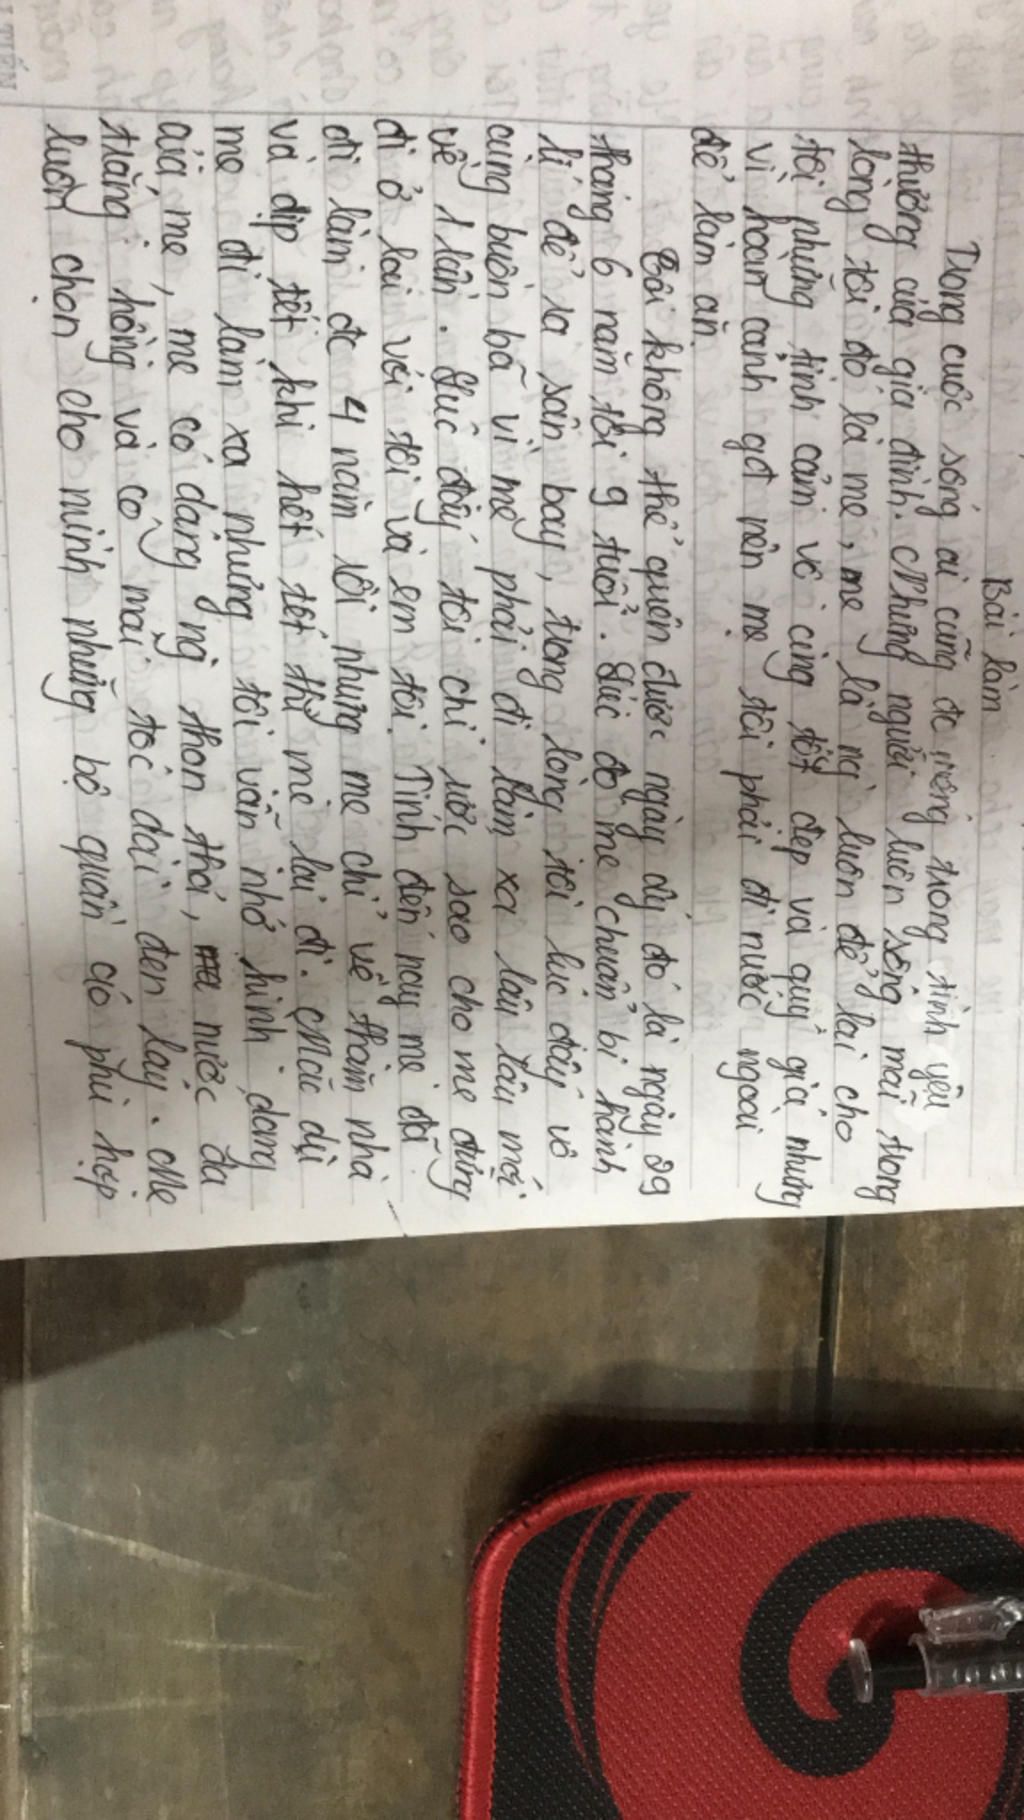 Bài làm
Trong cuộc sống ai cũng đc sống trong tình yêu
thương của gia đình. Những người luôn sống mãi trong
lòng tôi đó là mẹ, mẹ là ng luôn để lại cho
tôi những tình cảm vô cùng tốt đẹp và quý giá nhưng
vì hoàn cảnh gđ nên mẹ tôi phải đi nước ngoài
để làm ăn.
Tôi không thể quên được ngày ấy đó là ngày 29
tháng 6 năm tôi 9 tuổi. Lúc đó mẹ chuẩn bị hành
lí để ra sân bay, trong lòng tôi lúc đấy vô
cùng buồn bã vì mẹ phải đi làm xa lâu lâu mới
về 1 lần. Lúc đấy tôi chỉ ước sao cho mẹ đừng
đi ở lại với tôi và em tôi. Tính đến nay mẹ đã
đi làm đc 4 năm rồi nhưng mẹ chỉ về thăm nhà
và dịp tết khi hết tết thì mẹ lại đi. Mặc dù
mẹ đi làm xa nhưng tôi vẫn nhớ hình dáng
của mẹ, mẹ có dáng ng thon thả, nước da
trắng hồng và có mái tóc dài đen láy. Mẹ
luôn chọn cho mình những bộ quần áo phù hợp
TIẾN